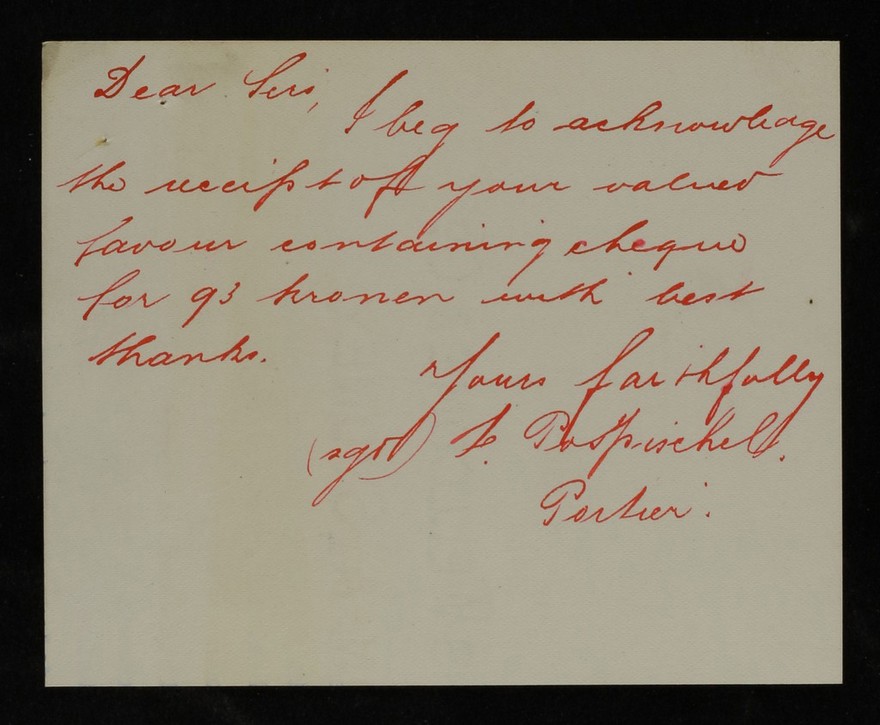 Dear Sirs,
I beg to acknowledge
the receipt of your valued
favour containing cheque
for 93 kronen with best
thanks.
Yours faithfully
(sgd) F. Pospischel.
Portier.